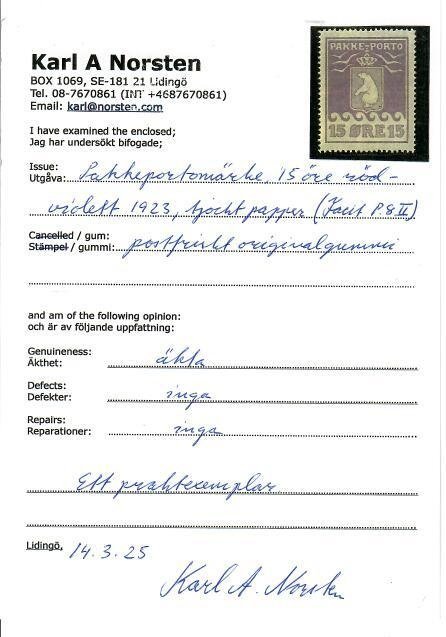 Karl A Norsten
BOX 1069, SE-181 21 Lidingö
Tel. 08-7670861 (INT +4687670861)
Email: karl@norsten.com
PAKKE-PORTO
15 ØRE 15
I have examined the enclosed;
Jag har undersökt bifogade;
Issue:
Utgåva: Pakkeportomärke, 15 öre röd-
violett 1923, tjockt papper (Facit P.8 II)
Cancelled / gum:
Stämpel / gummi: postfriskt originalgummi
and am of the following opinion:
och är av följande uppfattning:
Genuineness:
Äkthet: äkta
Defects:
Defekter: inga
Repairs:
Reparationer: inga
Ett praktexemplar
Lidingö, 14.3.25
Karl A. Norsten